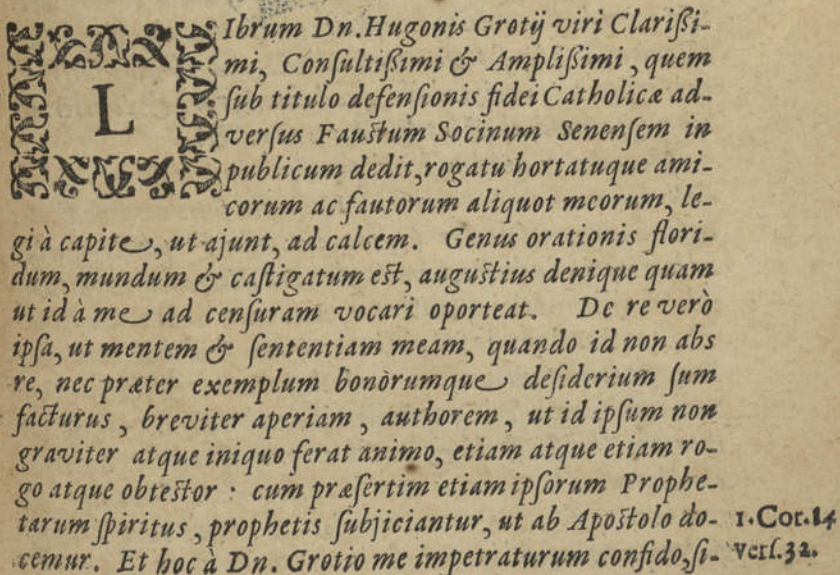 LIbrum Dn. Hugonis Grotij viri Clarißi-
mi, Consultißimi & Amplißimi, quem
sub titulo defensionis fidei Catholicæ ad-
versus Faustum Socinum Senensem in
publicum dedit, rogatu hortatuque ami-
corum ac fautorum aliquot meorum, le-
gi à capite, ut ajunt, ad calcem. Genus orationis flori-
dum, mundum & castigatum est, augustius denique quam
ut id à me ad censuram vocari oporteat. De re verò
ipsa, ut mentem & sententiam meam, quando id non abs
re, nec præter exemplum bonorumque desiderium sum
facturus, breviter aperiam, authorem, ut id ipsum non
graviter atque iniquo ferat animo, etiam atque etiam ro-
go atque obtestor: cum præsertim etiam ipsorum Prophe-
tarum spiritus, prophetis subjiciantur, ut ab Apostolo do- 1. Cor. 14
cemur. Et hoc à Dn. Grotio me impetraturum confido, si- vers. 32.